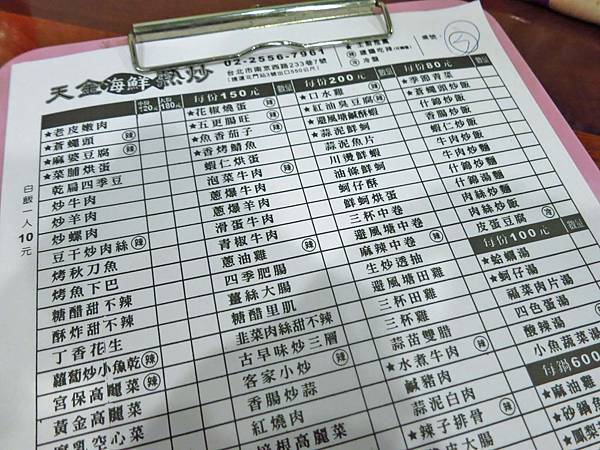 天金海鮮熱炒
02-2556-7961
台北市南京西路233巷7號
(捷運北門站3號出口550公尺)
編號:
白飯一人10元
小份120元 大份180元
★老皮嫩肉
★蒼蠅頭 辣
★麻婆豆腐 辣
★菜脯烘蛋
乾扁四季豆
炒牛肉
炒羊肉
炒螺肉
豆干炒肉絲 辣
烤秋刀魚
烤魚下巴
糖醋甜不辣
酥炸甜不辣
丁香花生
蘿蔔炒小魚乾 辣
宮保高麗菜 辣
黃金高麗菜
腐乳空心菜
每份150元 數量
★花椒燒蛋 辣
★五更腸旺 辣
★魚香茄子 辣
★香烤鯖魚
蝦仁烘蛋
泡菜牛肉
蔥爆牛肉
蔥爆羊肉
滑蛋牛肉
青椒牛肉
蔥油雞
四季肥腸
薑絲大腸
糖醋里肌
韭菜肉絲甜不辣
古早味炒三層
客家小炒
香腸炒蒜
紅燒肉
培根高麗菜
每份200元 數量
★口水雞 辣
★紅油臭豆腐 辣
★避風塘鹹酥蝦
★蒜泥鮮蚵
蒜泥魚片
川燙鮮蝦
油條鮮蚵
蚵仔酥
鮮蚵烘蛋
三杯中卷
避風塘中卷
麻辣中卷 辣
生炒透抽
避風塘田雞
三杯田雞
三杯雞
蒜苗雙腊
★水煮牛肉 辣
鹹豬肉
蒜泥白肉
★辣子排骨 辣
皮大腸
每份80元 數量
★季節青菜
★蒼蠅頭炒飯
什錦炒飯
香腸炒飯
蝦仁炒飯
牛肉炒飯
牛肉炒麵
什錦炒麵
什錦湯麵
肉絲炒麵
肉絲炒飯
皮蛋豆腐 冷
每份100元 數量
★蛤蠣湯
★蚵仔湯
福菜肉片湯
四色蛋湯
酸辣湯
小魚蔬菜湯
每鍋600
★麻油雞
★砂鍋魚
★鳳梨